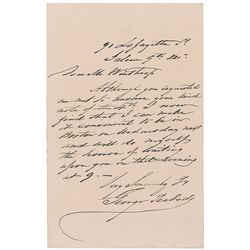 91 Lafayette St.
Salem 5th Dec.
Dear Mr Winthrop
Although you requested
me not to answer your kind
note of the 4th I now
find that I can make
it convenient to be in
Boston on Wednesday next
and will do myself
the honor of waiting
upon you on that Evening
at 9:—
Very Sincerely Yrs
George Peabody